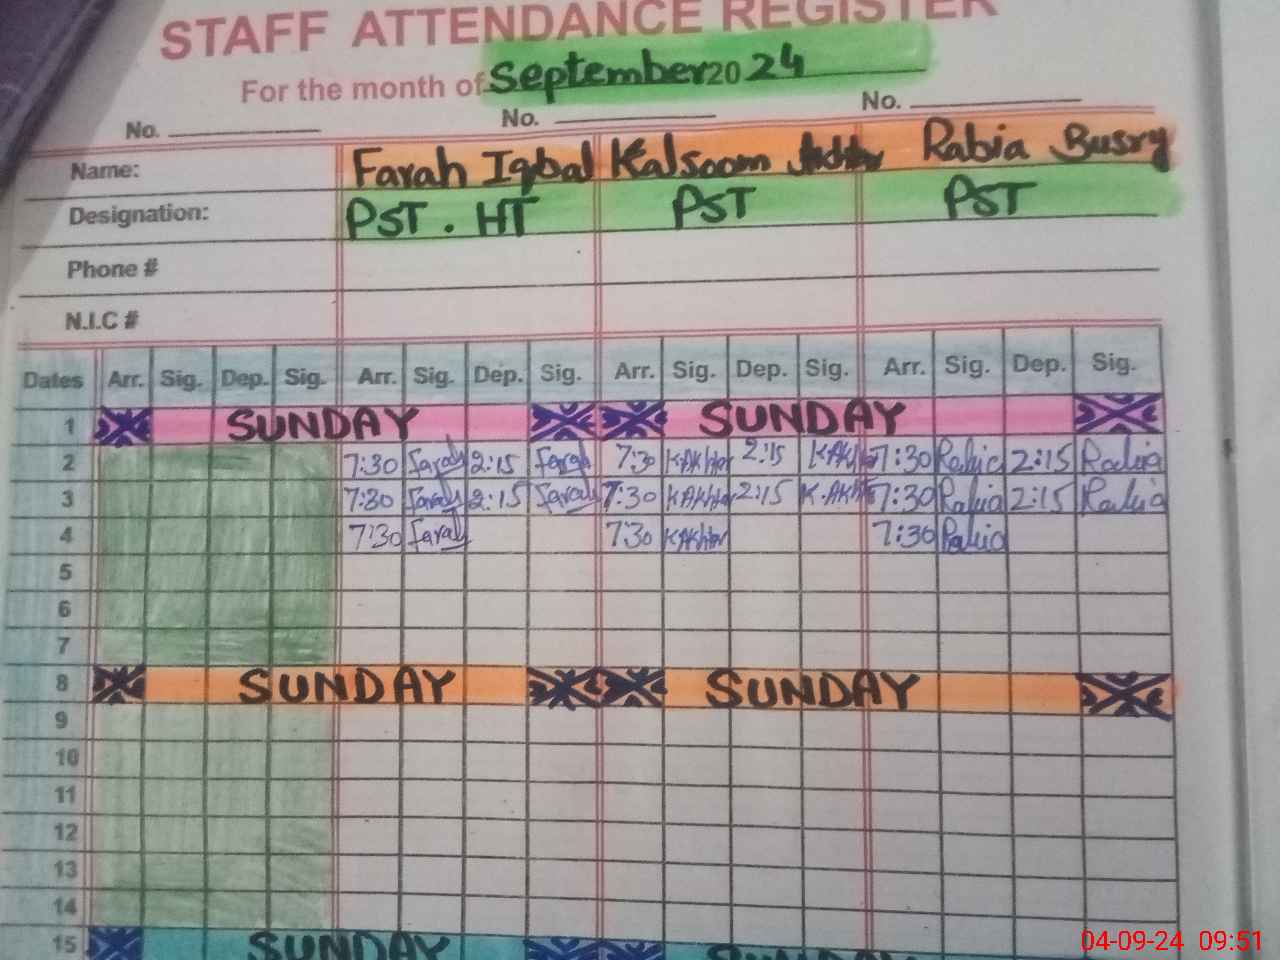 STAFF ATTENDANCE REGISTER
For the month of September 2024
No. No. No.
Name: Farah Iqbal Kalsoom Akhter Rabia Busry
Designation: PST . HT PST PST
Phone #
N.I.C #
Dates Arr. Sig. Dep. Sig. Arr. Sig. Dep. Sig. Arr. Sig. Dep. Sig. Arr. Sig. Dep. Sig.
1 SUNDAY SUNDAY
2 7:30 Farah 2:15 Farah 7:30 K.Akhter 2:15 K.Akhter 7:30 Rabia 2:15 Rabia
3 7:30 Farah 2:15 Farah 7:30 K.Akhter 2:15 K.Akhter 7:30 Rabia 2:15 Rabia
4 7:30 Farah 7:30 K.Akhter 7:30 Rabia
5
6
7
8 SUNDAY SUNDAY
9
10
11
12
13
14
15 SUNDAY SUNDAY
04-09-24 09:51